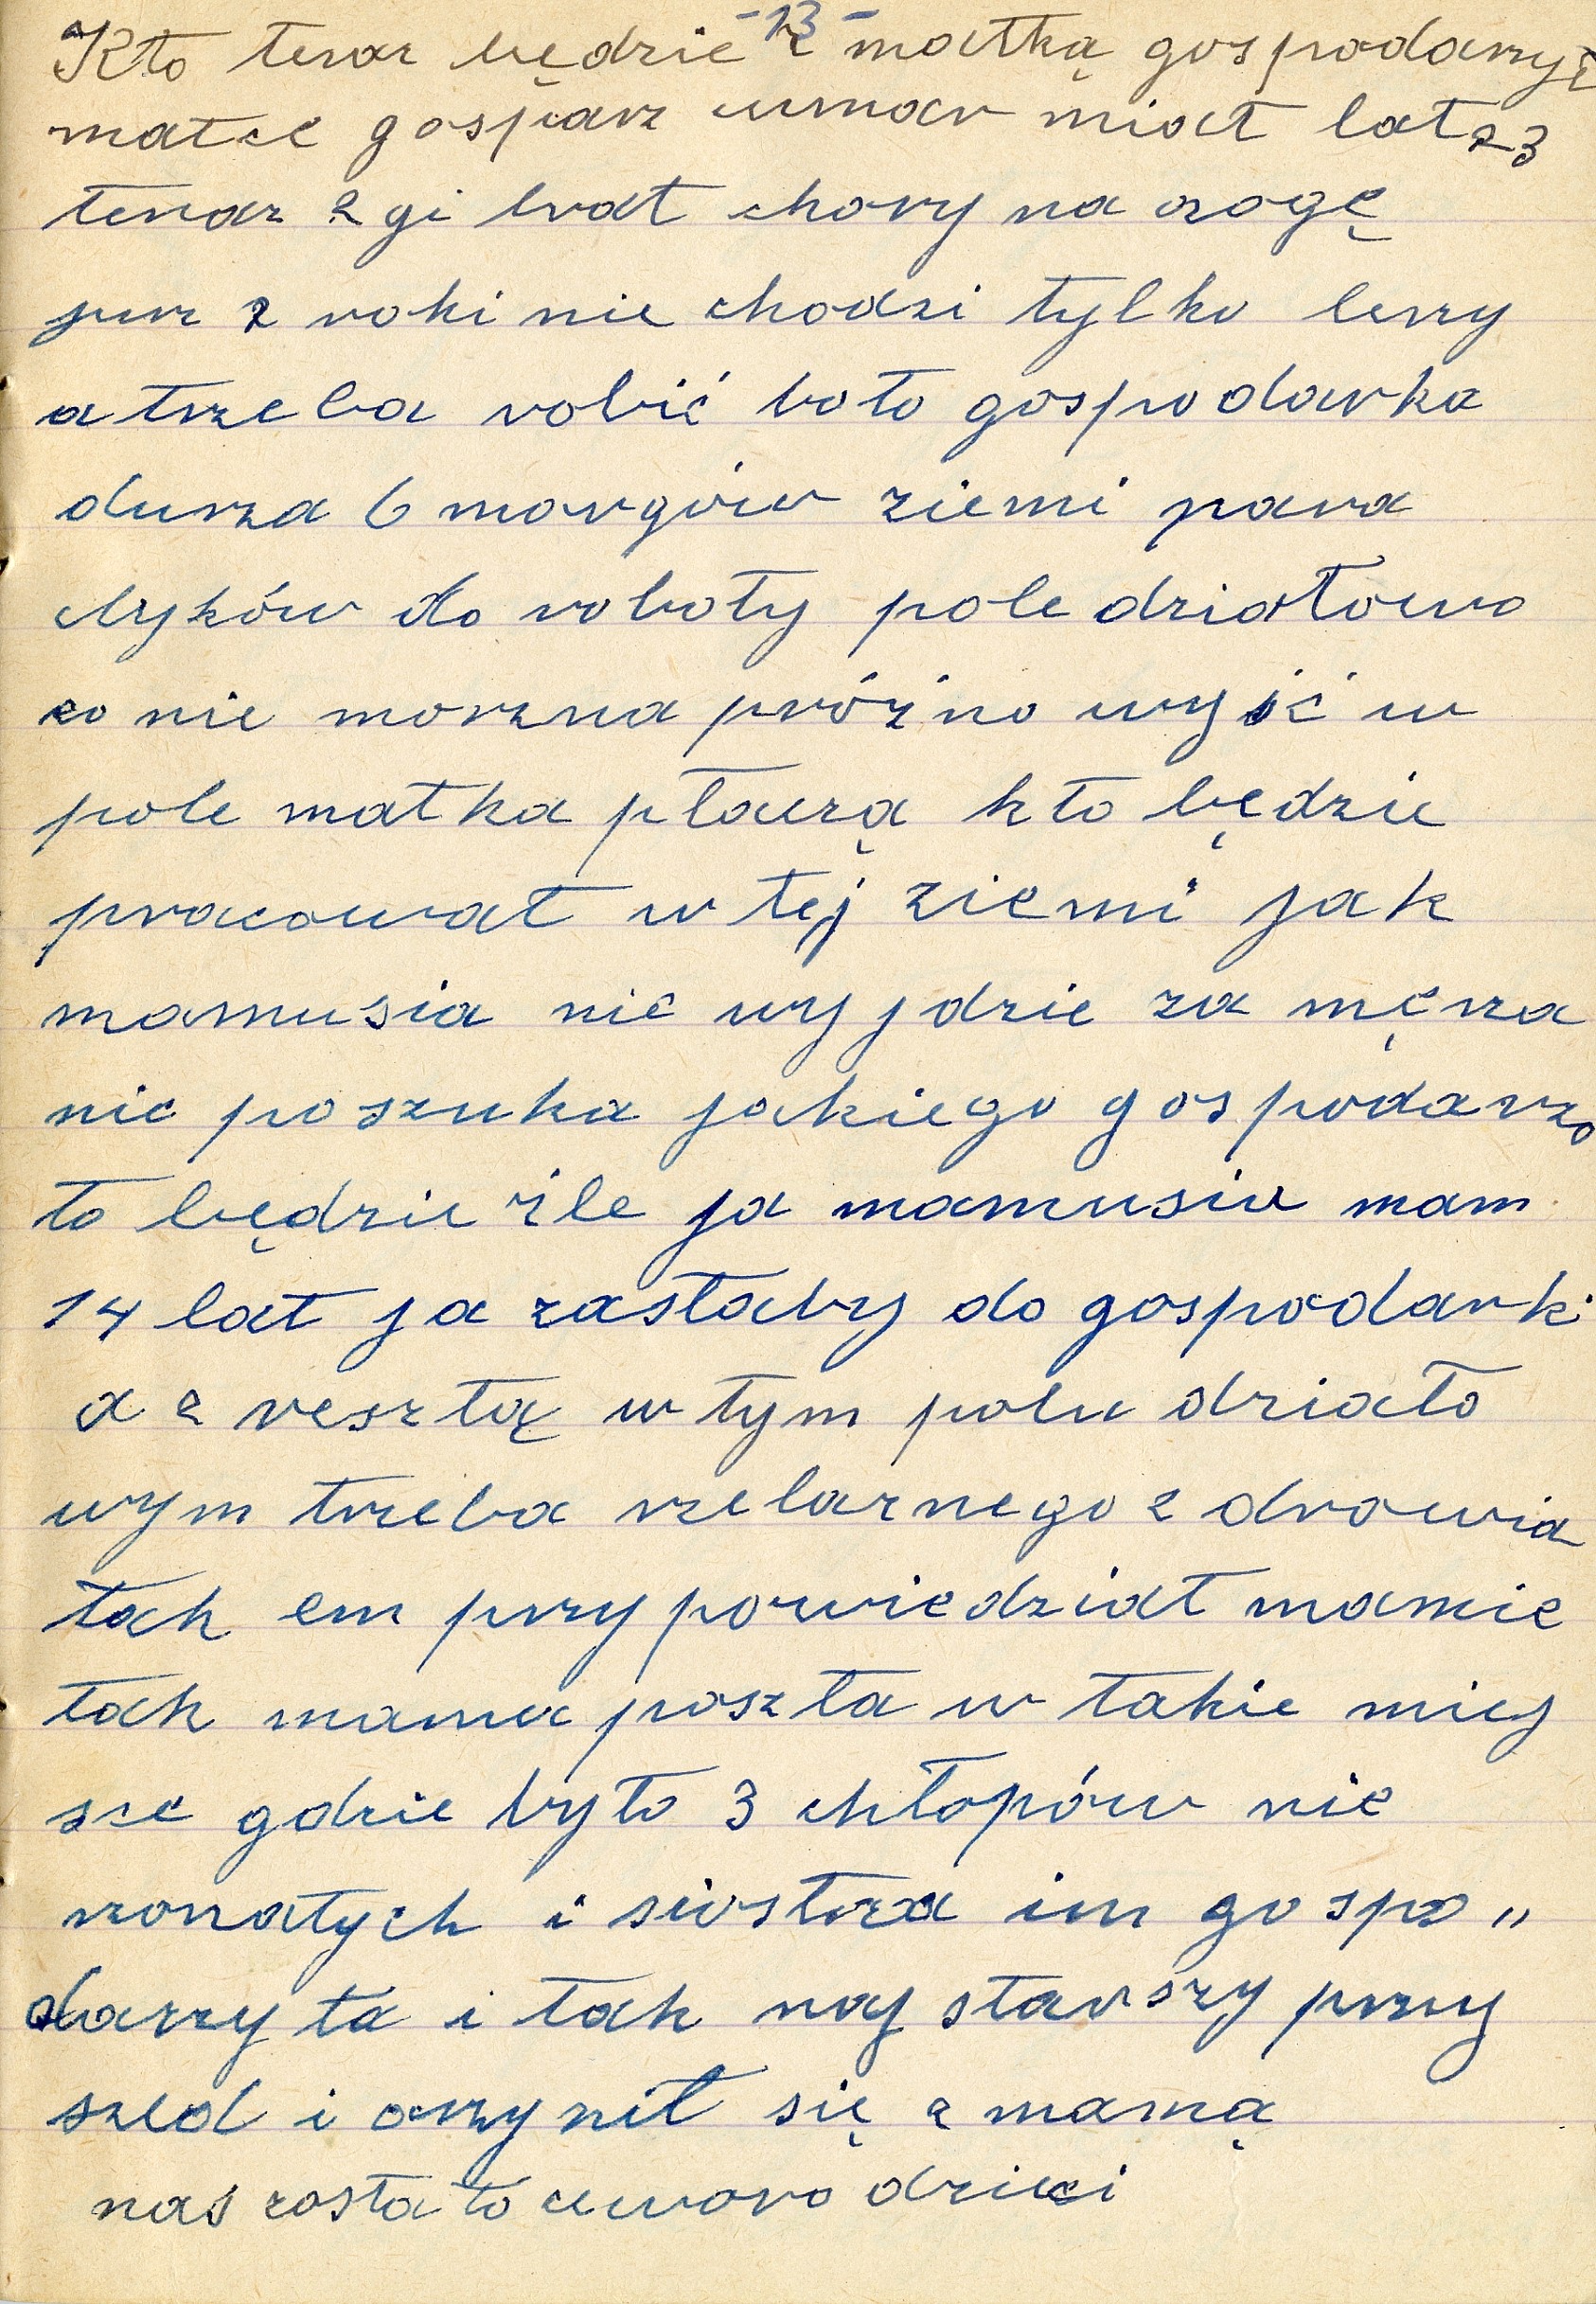 -13-
Kto teraz będzie z matką gospodarzył
matce gosparz umar miał lat 23
teraz 2gi brat chory na nogę
jurz 2 roki nie chodzi tylko lerzy
a trzeba robić bo to gospodarka
durza 6 morgów ziemi para
byków do roboty pole działowo
co nie morzna prózno wyść w
pole matka płaczą kto będzie
pracował w tej ziemi jak
mamusia nie wyjdzie za męrza
nie poszuka jakiego gospodarza
to będzie źle ja mamusiu mam
14 lat ja zasłaby do gospodarki
a z resztą w tym polu działo
wym trzeba rzelaznego zdrowia
tak em przypowiedział mamie
tak mama poszła w takie miej
sce gdzie było 3 chłopów nie
rzonatych i siostra im gospo„
darzyła i tak najstarszy przy
szed i orzynił się z mamą
nas zostało cworo dzieci